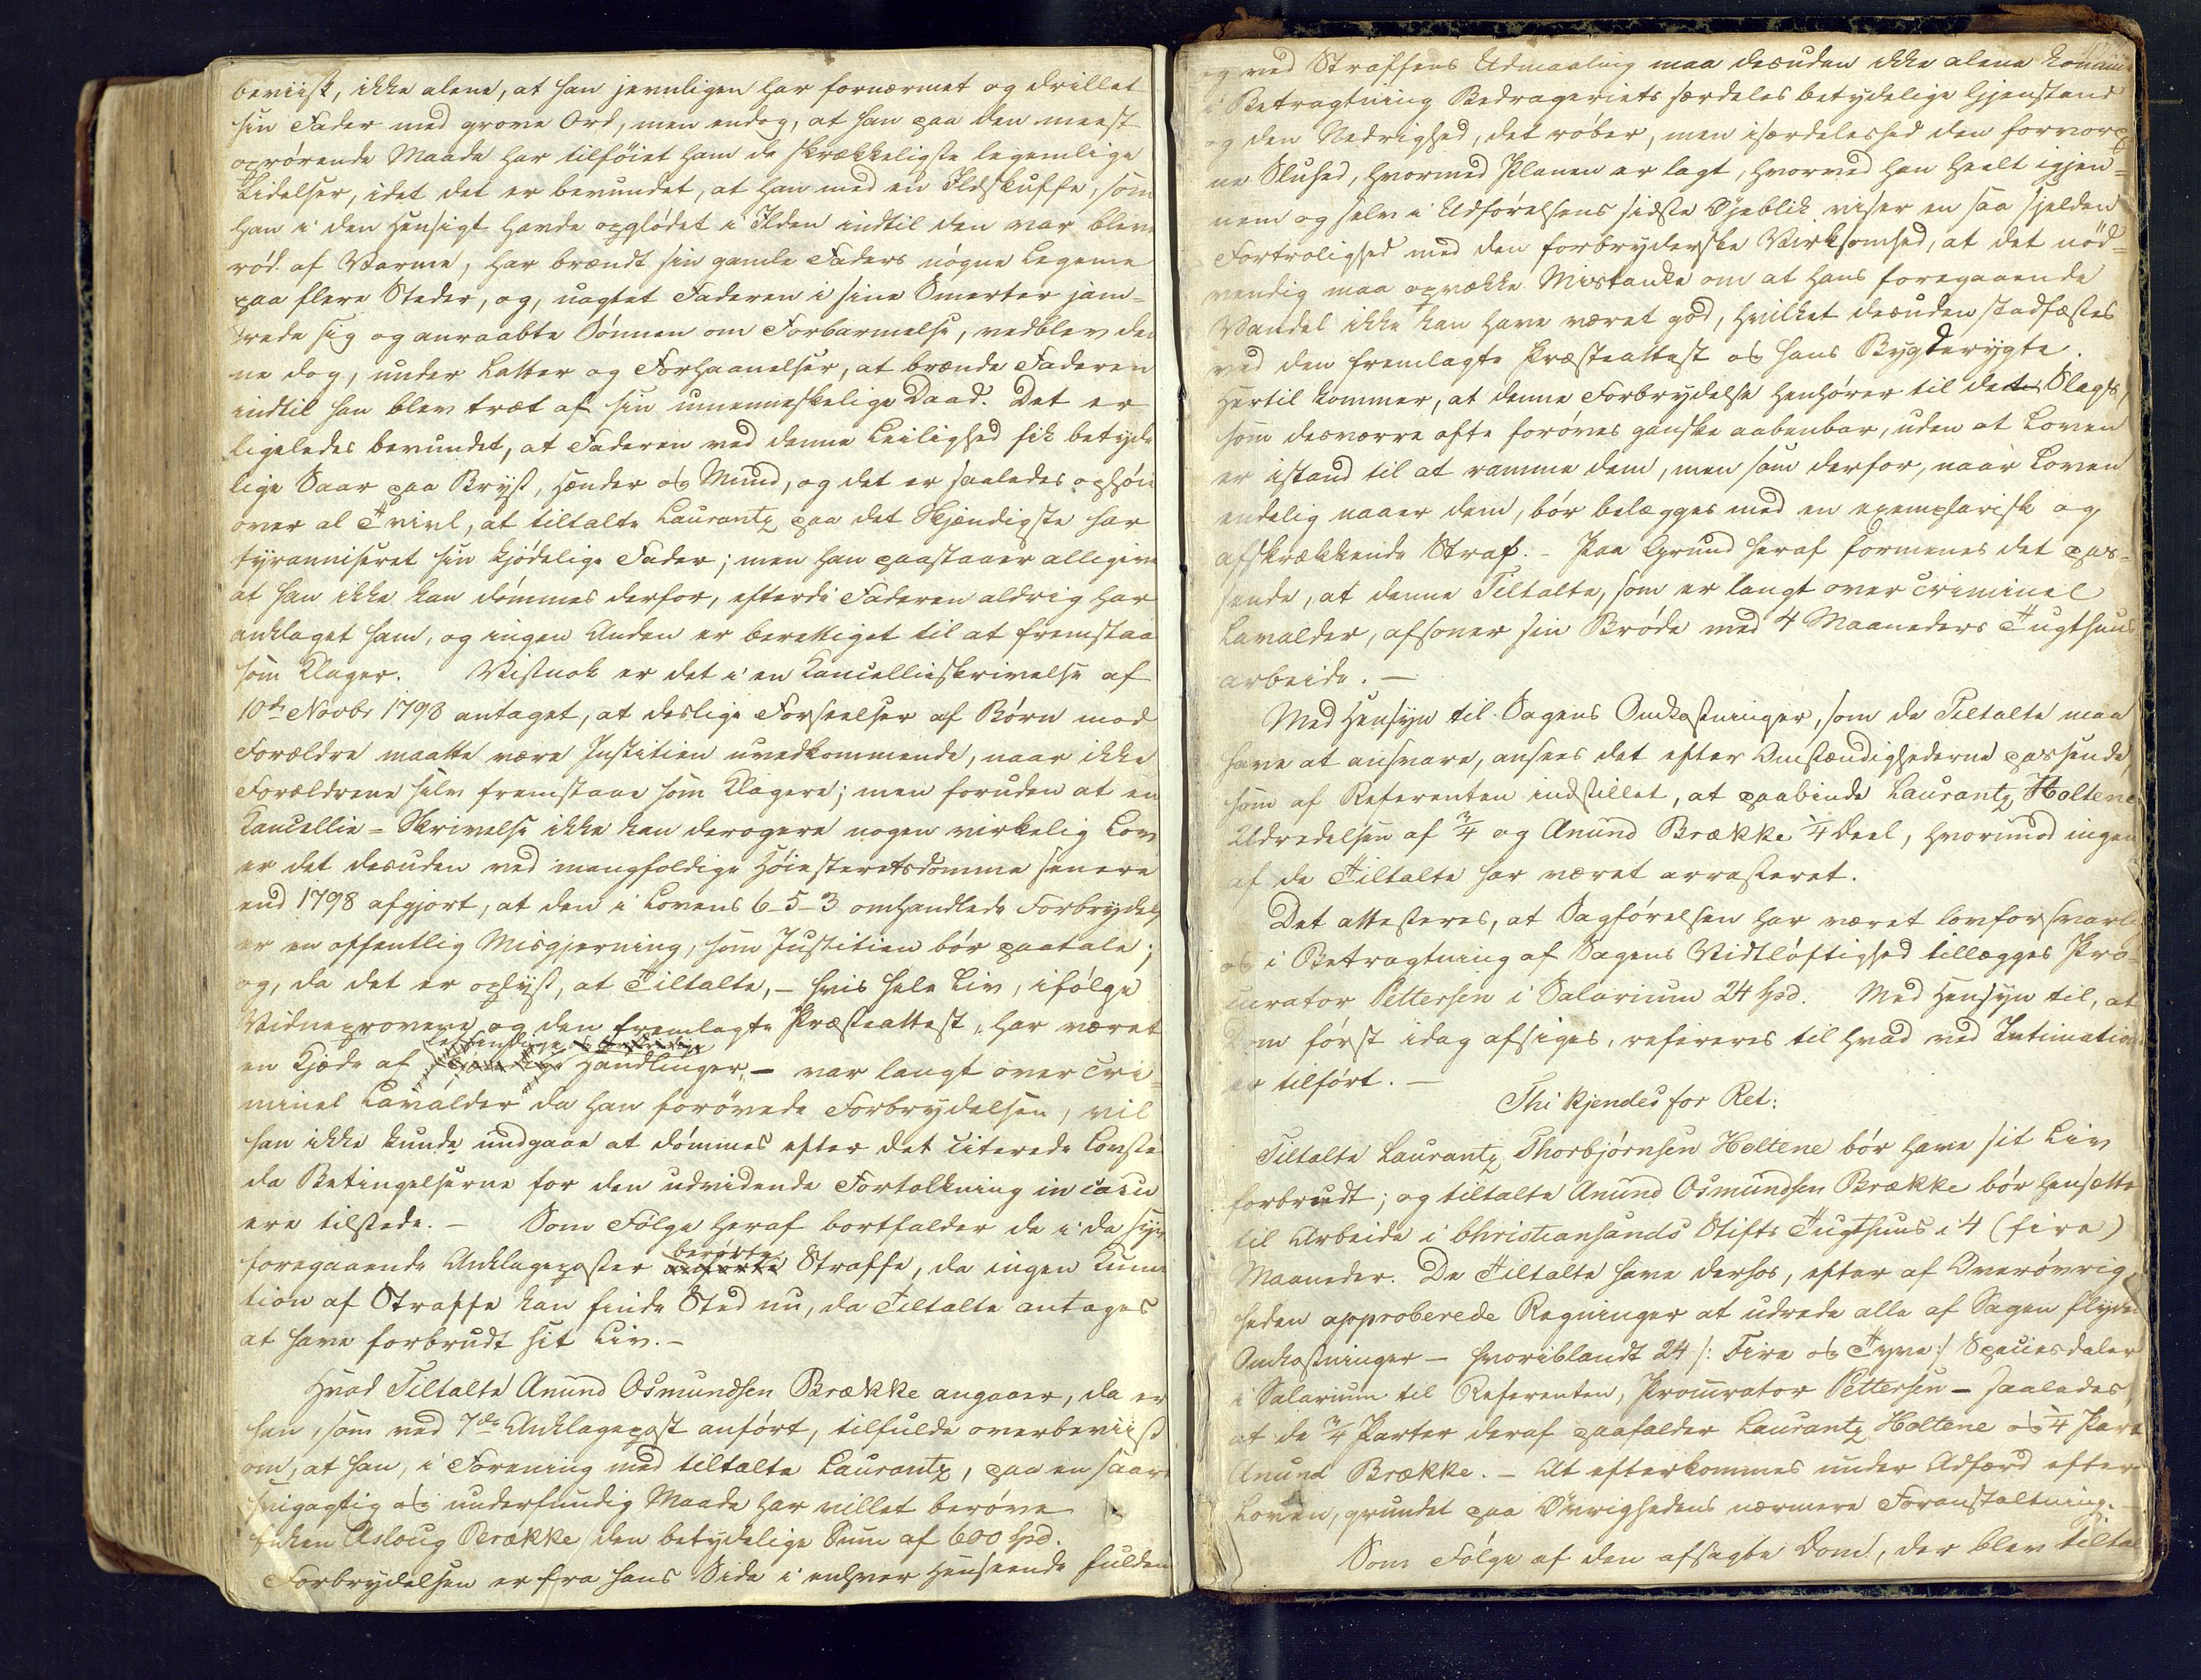 beviist, ikke alene, at han jevnligen har fornærmet og drillet
sin Fader med grove Ord, men endog, at han paa den meest
oprørende Maade har tilføiet ham de skrækkeligste legemlige
Lidelser, idet det er bevundet, at han med en Ildskuffe, som
han i den Hensigt havde opglödet i Ilden indtil den var bleve
röd af Varme, har brændt sin gamle Faders nögne Legeme
paa flere Steder, og, uagtet Faderen i sine Smerter jam=
rede sig og anraabte Sönnen om Forbarmelse, vedblev den
ne dog, under Latter og Forhaanelser, at brænde Faderen
indtil han blev træt af sin umenneskelige Daad. Det er
ligeledes bevundet, at Faderen ved denne Leilighed fik betyde
lige Saar paa Bryst, Hænder og Mund, og det er saaledes ophöie
over al Tvivl, at tiltalte Laurantz paa det Skjændigste har
tyranniseret sin kjödelige Fader; men han paastaaer alligeve
at han ikke kan dömmes derfor, efterdi Faderen aldrig har
anklaget ham, og ingen Anden er berettiget til at fremstaa
som Klager. Vistnok er det i en Cancelliskrivelse af
10de Novbr 1798 antaget, at deslige Forseelser af Börn mod
Forældre maatte være Justitien uvedkommende, naar ikke
Forældrene selv fremstaae som Klagere; men foruden at en
Cancellie-Skrivelse ikke kan derogere nogen virkelig Lov
er det desuden ved mangfoldige Höiesteretsdomme senere
end 1798 afgjort, at den i Lovens 6-5-3 omhandlede Forbrydels
er en offentlig Misgjerning, som Justitien bör paatale;
og, da det er oplyst, at Tiltalte, - hvis hele Liv, ifölge
Vidneprovene og den fremlagte Præsteattest, har været
en Kjæde af Handlinger, - var langt over Cri=
minel Lavalder da han forövede Forbrydelsen, vil
han ikke kunde undgaae at dömmes efter det citerede Lovste
da Betingelserne for den udvidende Fortolkning in casu
ere tilstede. - Som Fölge heraf bortfalder de i de syv
foregaaende Anklageposter berörte Straffe, da ingen Cumu
tion af Straffe kan finde Sted nu, da Tiltalte antages
at have forbrudt sit Liv. -
Hvad Tiltalte Anund Osmundsen Brække angaaer, da er
han, som ved 7de Anklagepost anfört, tilfulde overbeviist
om, at han, i Forening med tiltalte Laurantz, paa en saare
svigagtig og underfundig Maade har villet beröve
Enken Asloug Brække den betydelige Sum af 600 Spd.
Forbrydelsen er fra hans Side i enhver Henseende fulden
og ved Straffens Udmaaling maa desuden ikke alene komme
i Betragtning Bedrageriets særdeles betydelige Gjenstand
og den Nedrighed, det röber, men isærdeleshed den forvorp
ne Sluhed, hvormed Planen er lagt, hvorved han heelt igjen=
nem og selv i Udförelsens sidste Öjeblik viser en saa sjelden
Fortrolighed med den forbryderske Virksomhed, at det nöd=
vendig maa opvække Mistanke om at hans foregaaende
Vandel ikke kan have været god, hvilket desuden stadfæstes
ved den fremlagte Præsteattest og hans Bygderygte.
Hertil kommer, at denne Forbrydelse henhörer til de Slags,
som desværre ofte foröves ganske aabenbar, uden at Loven
er istand til at ramme dem, men som derfor, naar Loven
endelig naaer dem, bör belægges med en exemplarisk og
afskrækkende Straf. - Paa Grund heraf formenes det pas=
sende, at denne Tiltalte, som er langt over Criminel
Lavalder, afsoner sin Bröde med 4 Maaneders Tugthuus
arbeide. -
Med Hensyn til Sagens Omkostninger, som de Tiltalte maa
have at ansvare, ansees det efter Omstændighederne passende,
som af Referenten indstillet, at paabinde Laurantz Holtene
Udredelsen af 3/4 og Anund Brække 1/4 Deel, hvorimod ingen
af de Tiltalte har været arresteret.
Det attesteres, at Sagförelsen har været lovforsvarli
og i Betragtning af Sagens Vidtlöftighed tillægges Pro=
curator Pettersen i Salarium 24 Spd. Med Hensyn til, at
Dom först idag afsiges, refereres til hvad ved Intimation
er tilfört. -
Thi kjendes for Ret:
Tiltalte Laurantz Thorbjörnsen Holtene bör have sit Liv
forbrudt; og tiltalte Anund Osmundsen Brække bör hensættes
til Arbeide i Christiansands Stifts Tugthuus i 4 (fire)
Maaneder. De Tiltalte have derhos, efter af Overövrig
heden approberede Regninger at udrede alle af Sagen flyden
Omkostninger - hvoriblandt 24 /: Fire og Tyve :/ Speciesdaler
i Salarium til Referenten, Procurator Pettersen - saaledes,
at de 3/4 Parter deraf paafalder Laurantz Holtene og 1/4 Part
Anund Brække. - At efterkommes under Adfærd efter
Loven, grundet paa Övrighedens nærmere Foranstaltning. -
Som Fölge af den afsagte Dom, der blev tiltal